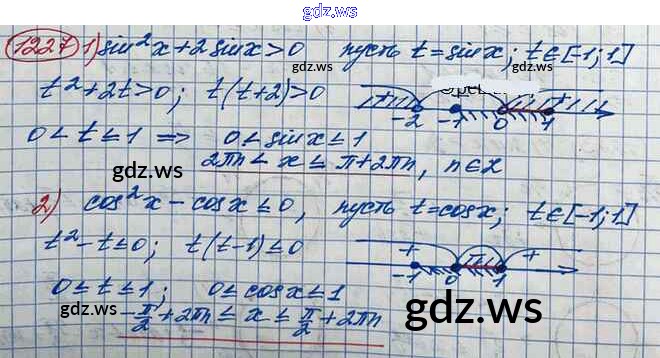 gdz.ws
1227 1) sin²x + 2 sinx > 0 пусть t = sinx; t ∈ [-1; 1]
gdz.ws gdz.ws
t² + 2t > 0; t(t+2) > 0
-2 -1 0 1
0 < t ≤ 1 ⟹ 0 < sinx ≤ 1
gdz.ws
2πn < x ≤ π + 2πn, n ∈ Z
2) cos²x - cosx ≤ 0, пусть t = cosx; t ∈ [-1; 1]
t² - t ≤ 0; t(t-1) ≤ 0 + +
gdz.ws -1 0 1
0 ≤ t ≤ 1; 0 ≤ cosx ≤ 1
gdz.ws gdz.ws
-π/2 + 2πn ≤ x ≤ π/2 + 2πn
gdz.ws